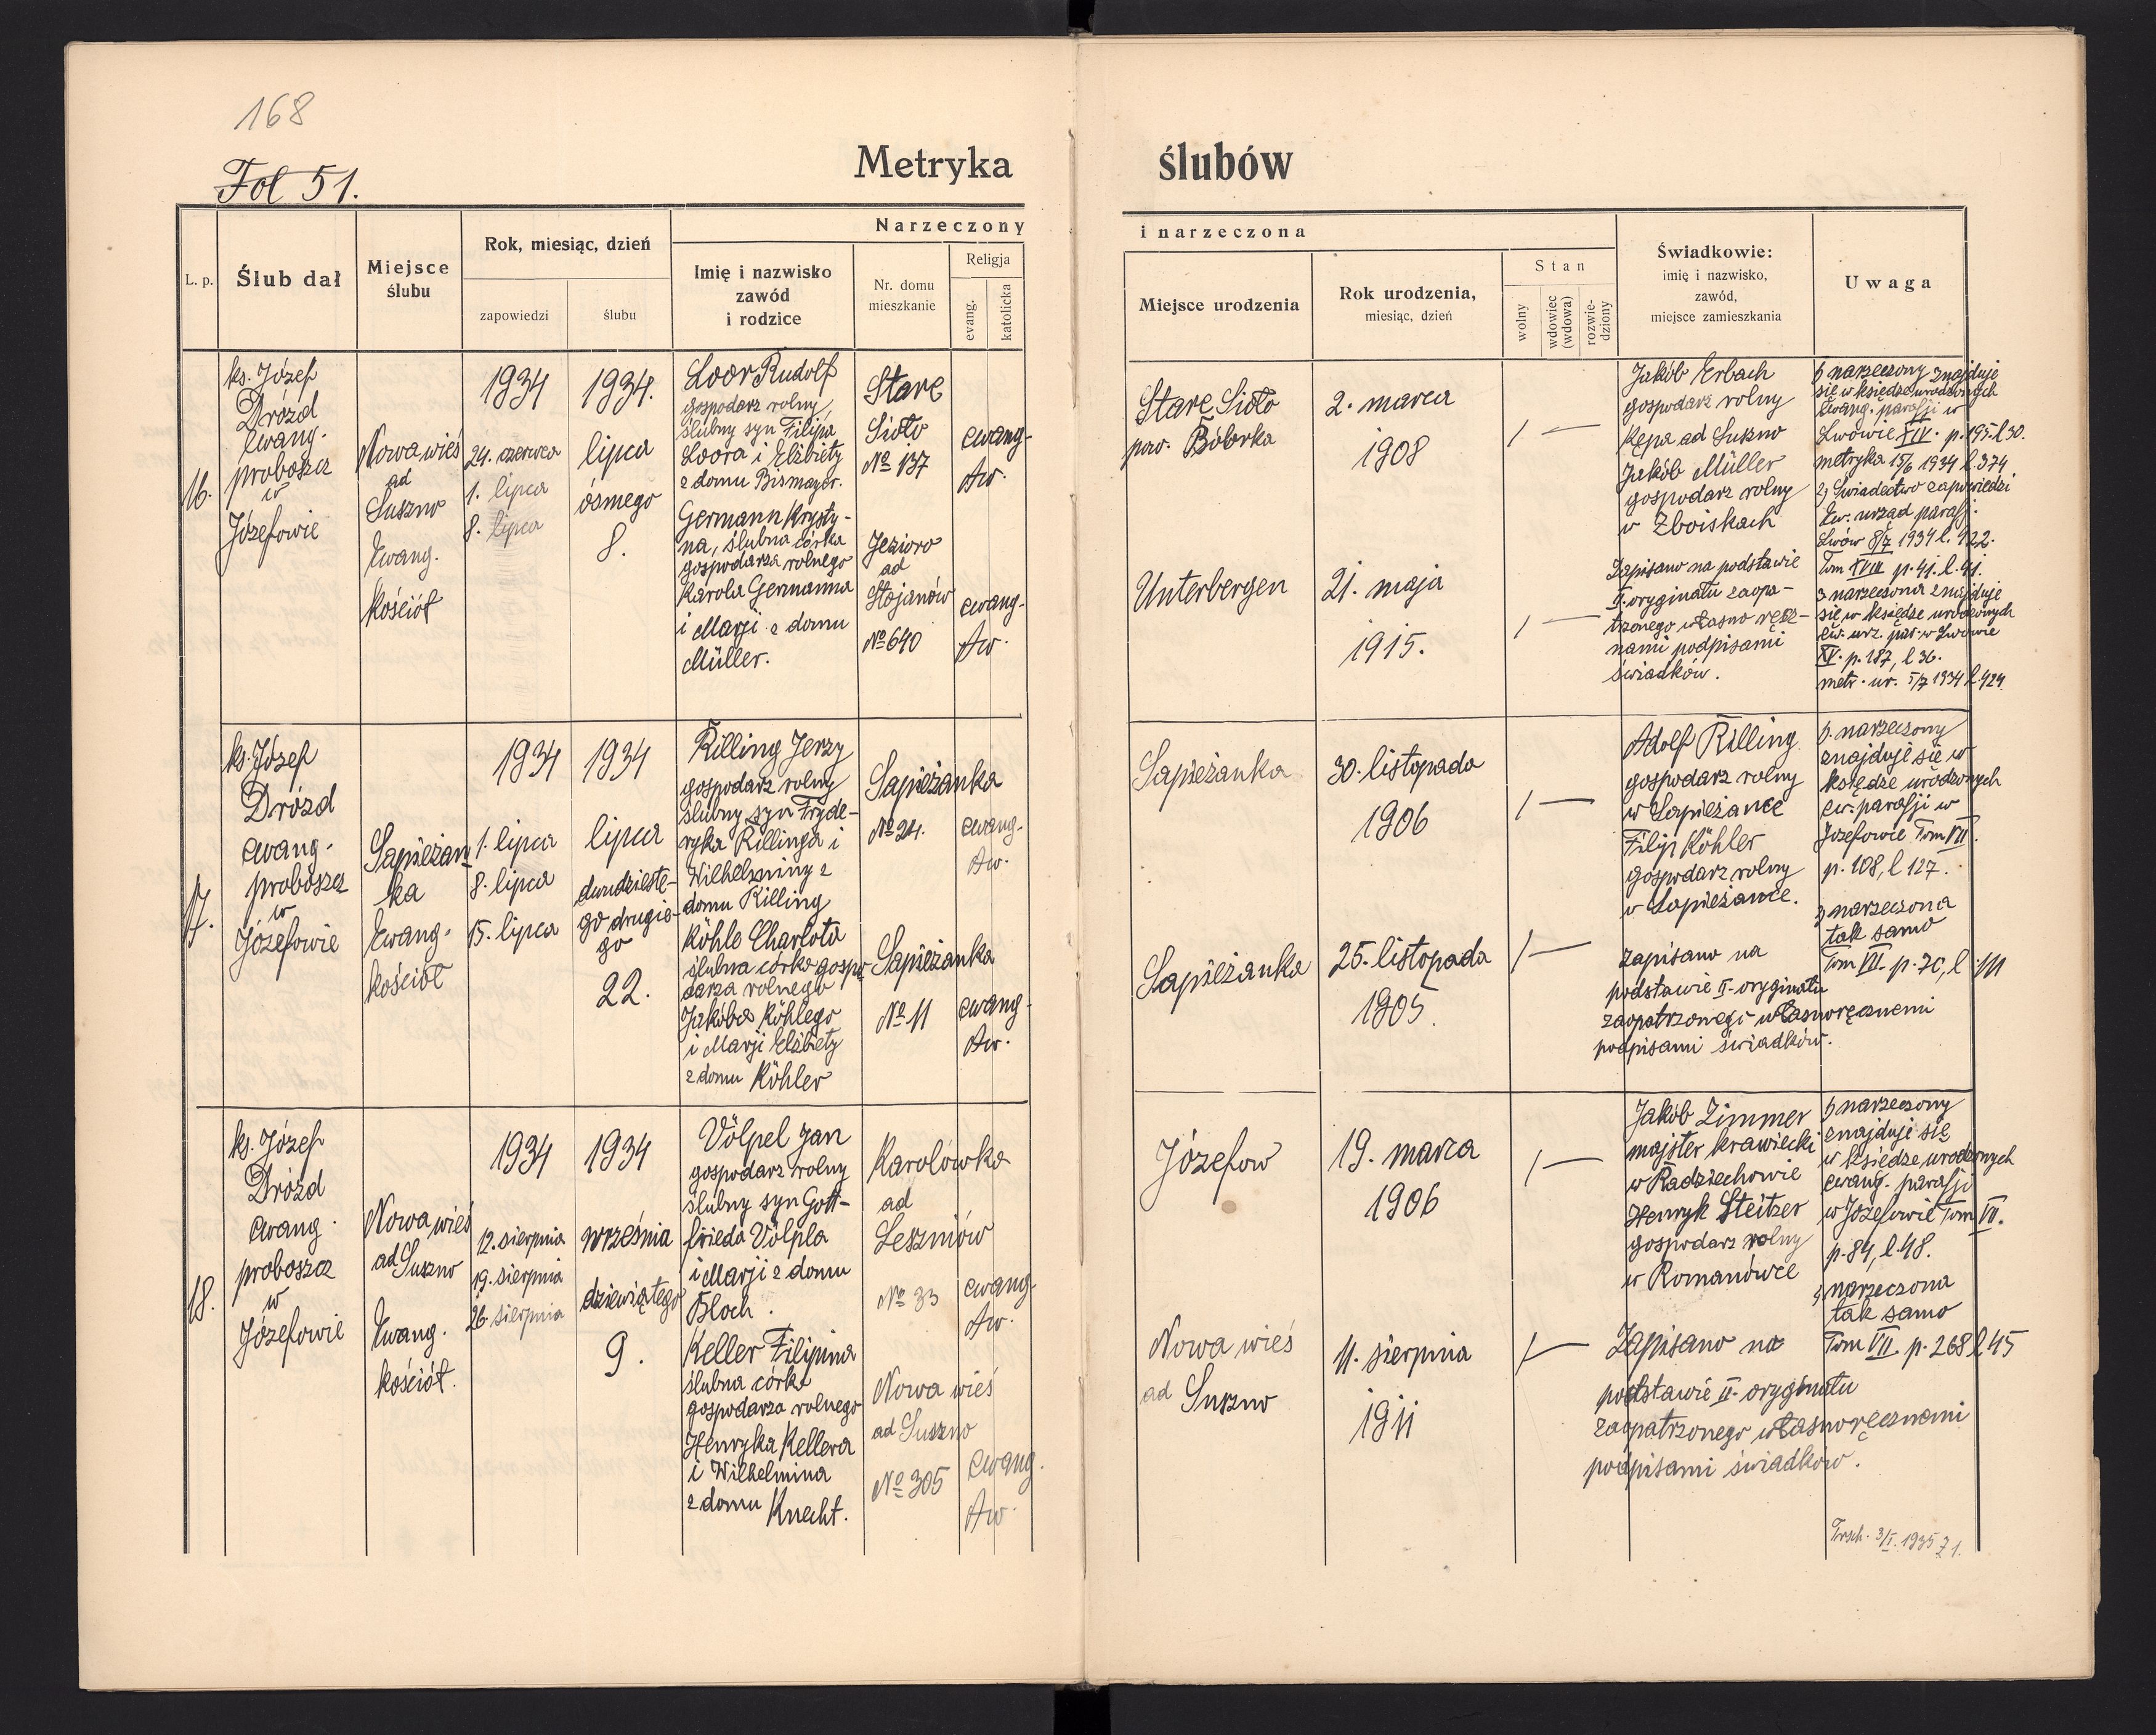 168
Fol 51.
Metryka ślubów
Narzeczony i narzeczona
L. p.
Ślub dał
Miejsce
ślubu
Rok, miesiąc, dzień
zapowiedzi
ślubu
Imię i nazwisko
zawód
i rodzice
Nr. domu
mieszkanie
Religja
evang.
katolicka
Miejsce urodzenia
Rok urodzenia,
miesiąc, dzień
Stan
wolny
wdowiec
(wdowa)
rozwie-
dziony
Świadkowie:
imię i nazwisko,
zawód,
miejsce zamieszkania
Uwaga
16.
ks. Józef
Drózd
ewang.
proboszcz
w
Józefowie
Nowa wieś
ad
Suszno
Ewang.
kościół
1934
24. czerwca
1. lipca
8. lipca
1934.
lipca
ósmego
8.
Loor Rudolf
gospodarz rolny,
ślubny syn Filipa
Loora i Elżbiety
z domu Bismayer.
Germann Krysty-
na, ślubna córka
gospodarza rolnego
Karola Germanna
i Marji z domu
Müller.
Stare
Sioło
№ 137
Jezioro
ad
Stojanów
№ 640
ewang.
Aw.
ewang.
Aw.
Stare Sioło
pow. Bóbrka
Unterbergen
2. marca
1908
21. maja
1915.
1 —
1 —
Jakób Erbach
gospodarz rolny
Kępa ad Suszno
Jakób Müller
gospodarz rolny
w Zboiskach
Zapisano na podstawie
II. oryginału zaopa-
trzonego własno ręcz-
nami podpisami
świadków.
1) narzeczony znajduje
się w księdze urodzonych
Ewang. parafji w
Lwowie XIV. p. 195. l 30.
metryka 15/6 1934 l. 374
2) Świadectwo zapowiedzi
Ew. urząd parafj.
Lwów 8/7 1934 l. 422.
Tom XVIII p. 41. l. 41.
3) narzeczona znajduje
się w księdze urodzonych
ew. urz. par. w Lwowie
XV. p. 187, l 36.
metr. ur. 5/7 1934 l. 424
17.
ks. Józef
Drózd
ewang.
proboszcz
w
Józefowie
Sapieżan
ka
Ewang.
kościół
1934
1. lipca
8. lipca
15. lipca
1934
lipca
dwudzieste-
go drugie-
go
22.
Rilling Jerzy
gospodarz rolny
ślubny syn Fryde-
ryka Rillinga i
Wilhelminy z
domu Rilling
Köhle Charlota
ślubna córka gospo-
darza rolnego
Jakóba Köhlego
i Marji Elżbiety
z domu Köhler
Sapieżanka
№ 24.
Sapieżanka
№ 11
ewang.
Aw.
ewang.
Aw.
Sapieżanka
Sapieżanka
30. listopada
1906
25. listopada
1905.
1 —
1 —
Adolf Rilling
gospodarz rolny
w Sapieżance
Filip Köhler
gospodarz rolny
w Sapieżance.
zapisano na
podstawie II. oryginału
zaopatrzonego własnoręcznemi
podpisami świadków.
1) narzeczony
znajduje się w
księdze urodzonych
ew. parafji w
Józefowie Tom VII.
p. 108, l 127.
2) narzeczona
tak samo
Tom VII. p. 70, l 111
18.
ks. Józef
Drózd
ewang.
proboszcz
w
Józefowie
Nowa wieś
ad Suszno
Ewang.
kościół.
1934
12. sierpnia
19. sierpnia
26. sierpnia
1934
września
dziewiątego
9.
Völpel Jan
gospodarz rolny
ślubny syn Gott-
frieda Völpla
i Marji z domu
Bloch.
Keller Filipina
ślubna córka
gospodarza rolnego
Henryka Kellera
i Wilhelmina
z domu Knecht.
Karolówka
ad
Leszniów
№ 33
Nowa wieś
ad Suszno
№ 305
ewang.
Aw.
ewang.
Aw.
Józefow
Nowa wieś
ad Suszno
19. marca
1906
11. sierpnia
1911
1 —
1 —
Jakób Zimmer
majster krawiecki
w Radziechowie
Henryk Steitzer
gospodarz rolny
w Romanówce
Zapisano na
podstawie II. oryginału
zaopatrzonego własnoręcznemi
podpisami świadków.
1) narzeczony
znajduje się
w księdze urodzonych
ewang. parafji
w Józefowie Tom VII.
p. 84, l. 48.
2) narzeczona
tak samo
Tom VII. p. 268 l 45
3/I. 1935